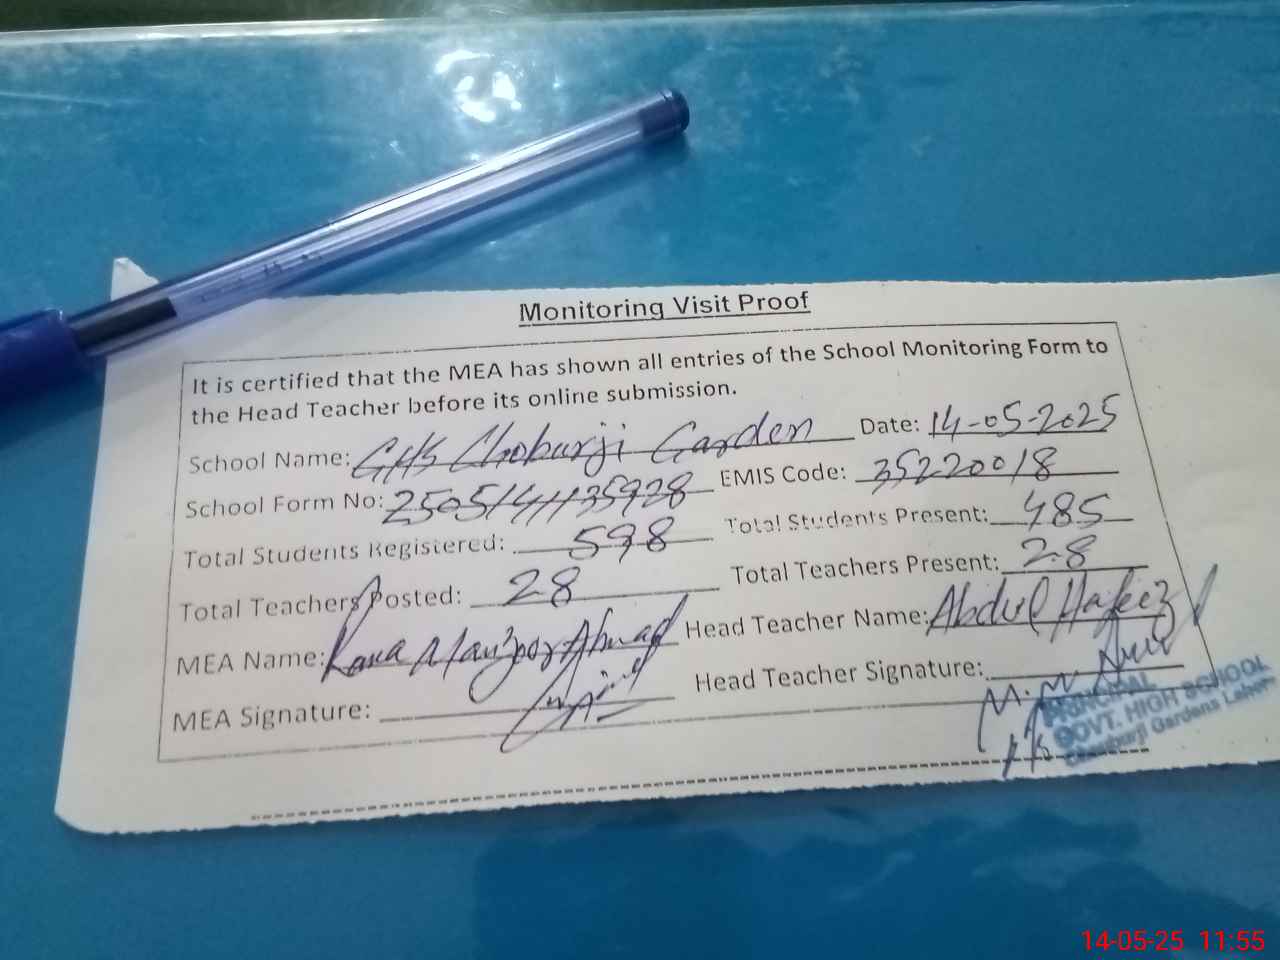 Monitoring Visit Proof
It is certified that the MEA has shown all entries of the School Monitoring Form to
the Head Teacher before its online submission.
School Name: GHS Choburji Garden Date: 14-05-2025
School Form No: 2505141135928 EMIS Code: 35220018
Total Students Registered: 598 Total Students Present: 485
Total Teachers Posted: 28 Total Teachers Present: 28
MEA Name: Rana Manzoor Ahmad Head Teacher Name: Abdul Hafeez
MEA Signature: Head Teacher Signature:
PRINCIPAL
GOVT. HIGH SCHOOL
Chouburji Gardens Lahore
14-05-25 11:55